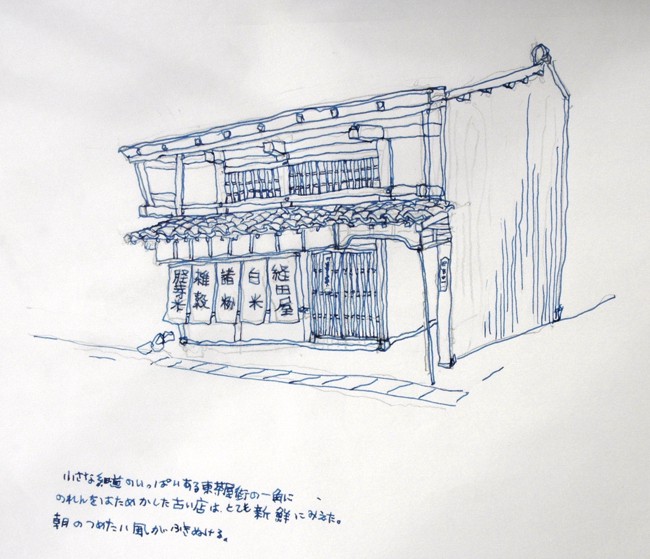 経田屋
白米
諸粉
雑穀
胚芽米
小さな細道のいっぱいある東茶屋街の一角に
のれんをはためかした古い店は、とても新鮮にみえた。
朝のつめたい風がふきぬける。